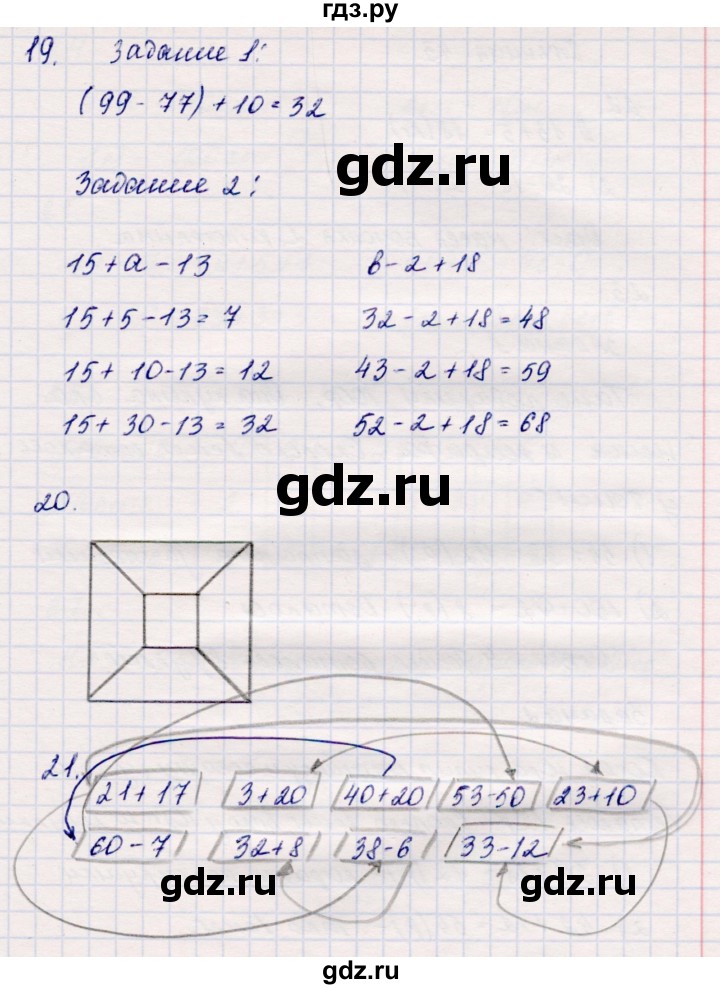 гдз.ру
19. Задание 1:
(99 - 77) + 10 = 32
gdz.ru
Задание 2:
15 + а - 13 в - 2 + 18
15 + 5 - 13 = 7 32 - 2 + 18 = 48
15 + 10 - 13 = 12 43 - 2 + 18 = 59
15 + 30 - 13 = 32 52 - 2 + 18 = 68
gdz.ru
20.
21.
21 + 17 3 + 20 40 + 20 53 - 50 23 + 10
60 - 7 32 + 8 38 - 6 33 - 12
gdz.ru gdz.ru
gdz.ru